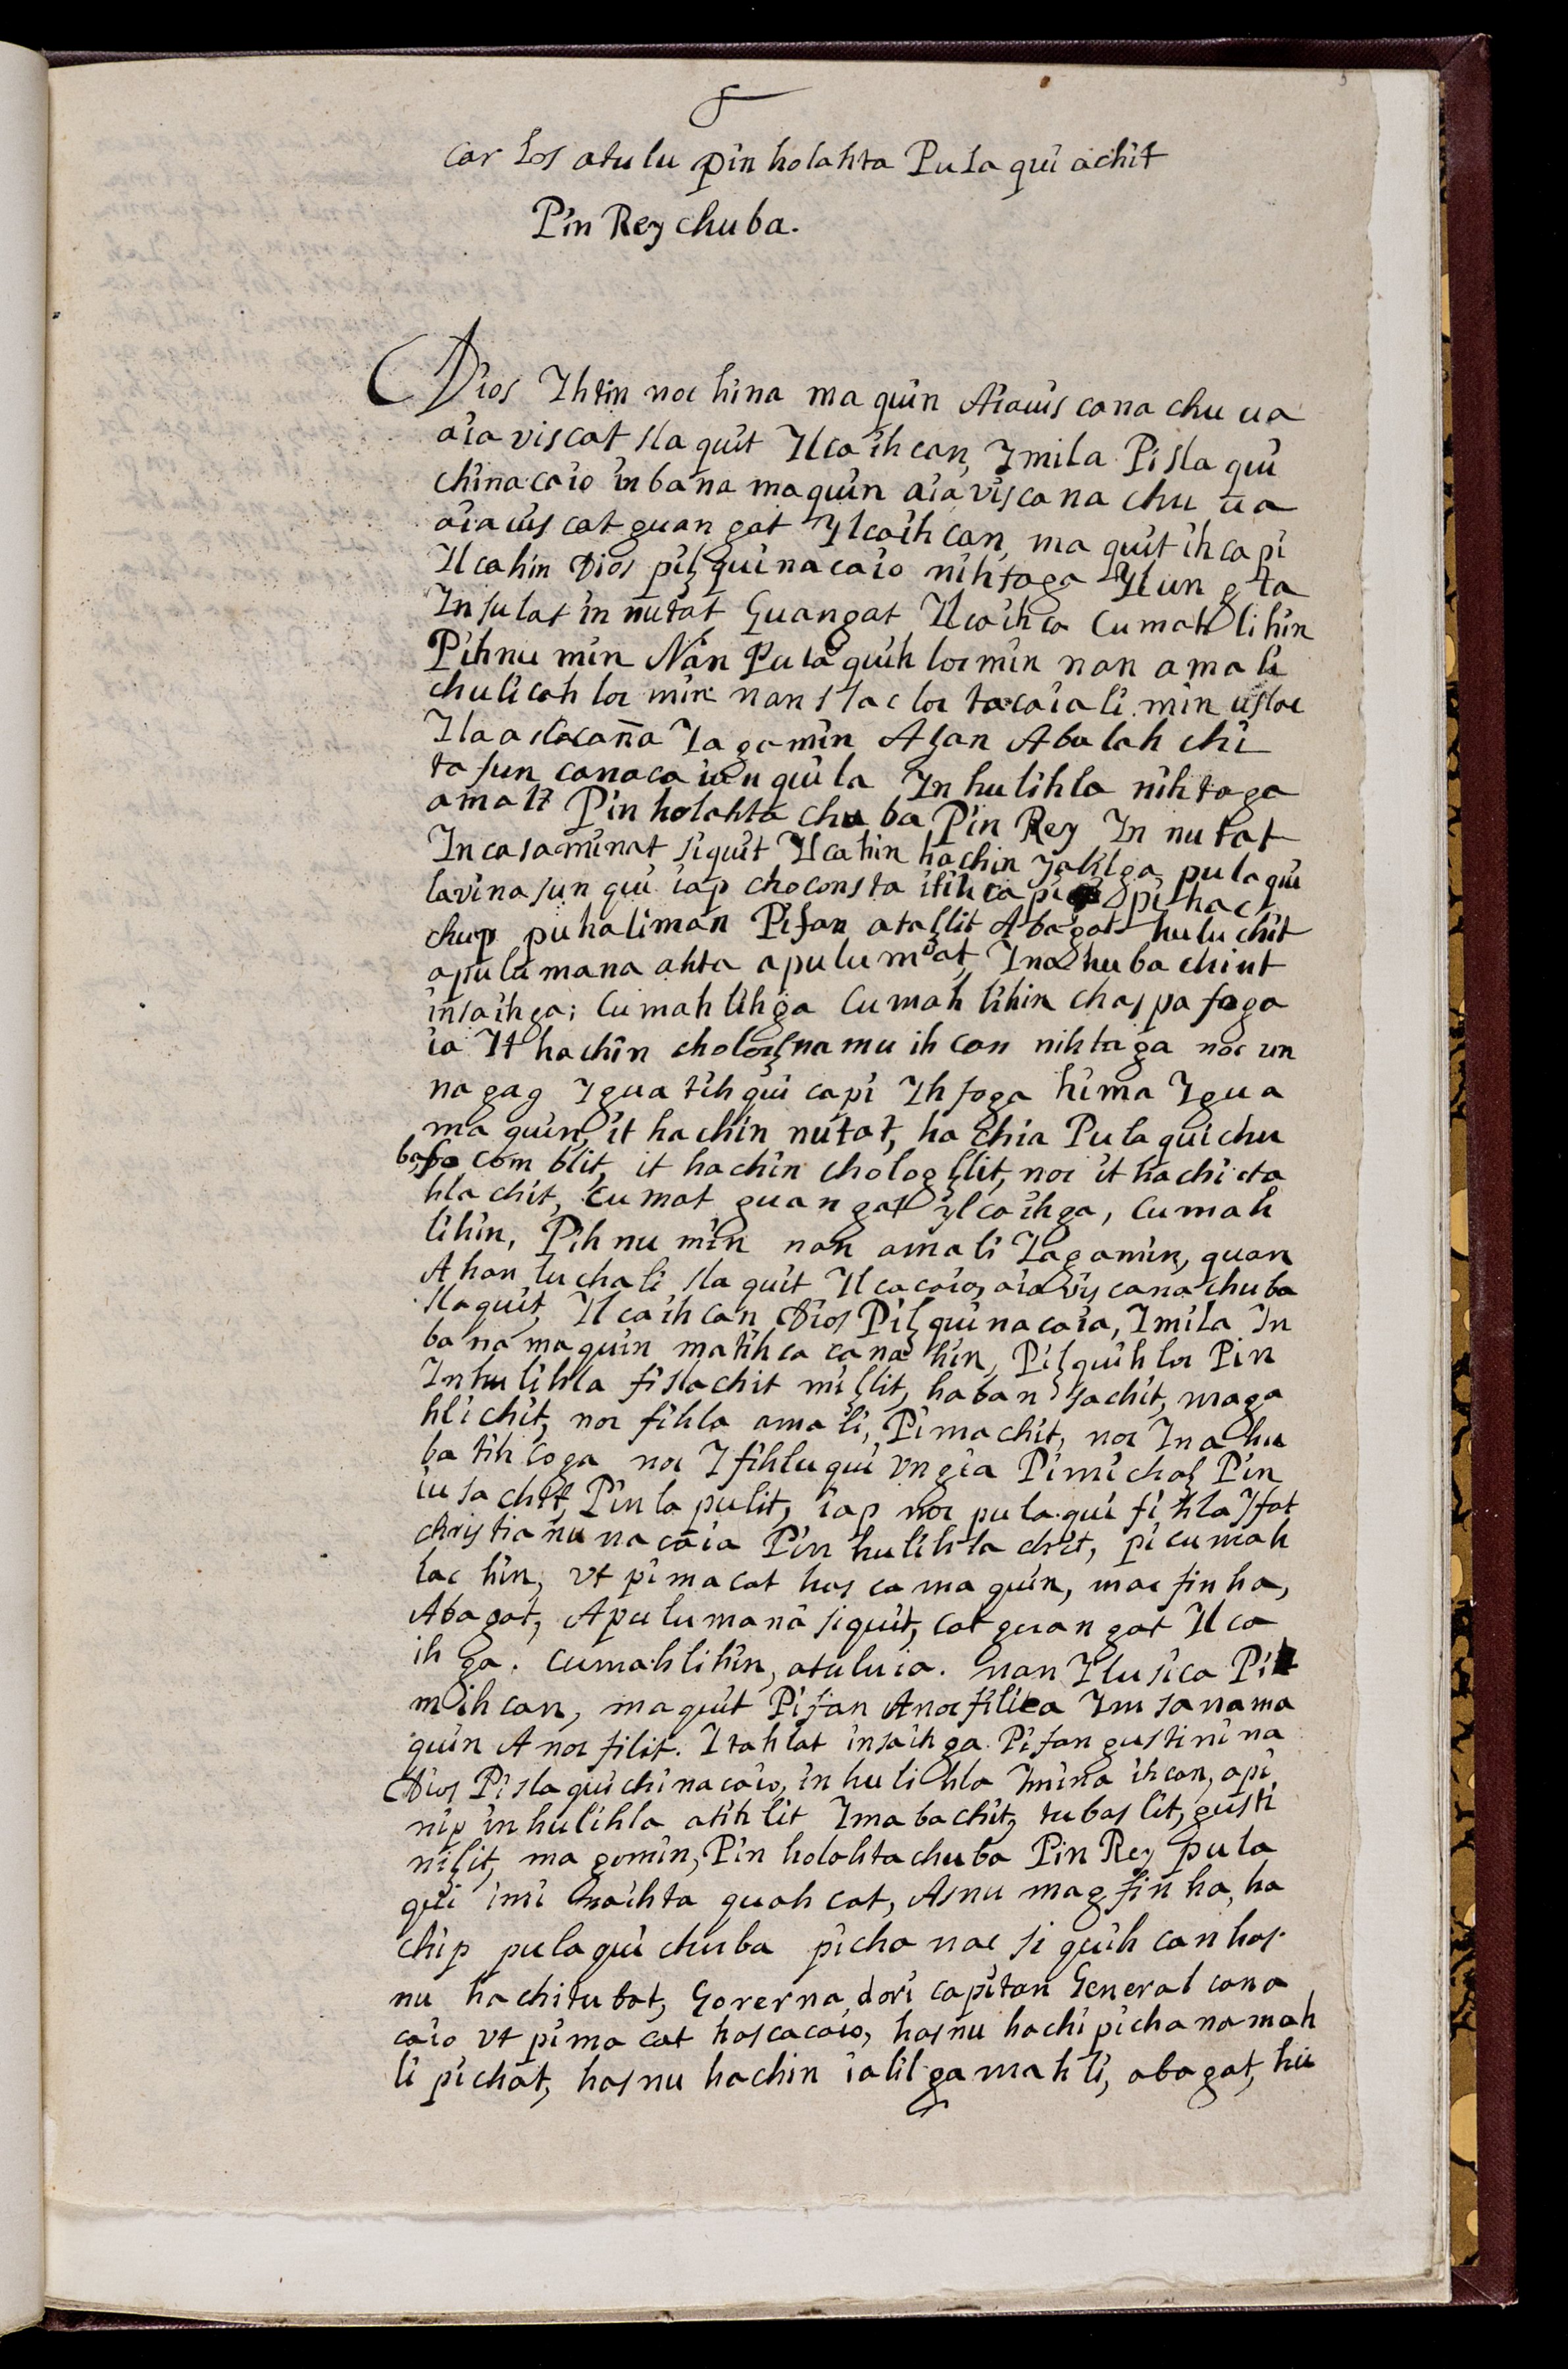 Carlos atulu pin holahta Pulaqui achit
Pin Rey chuba.
Dios Ihtin noc hina ma quin Aiauis cana chu ua
aia viscat sla quit Ilca ih can, Imila Pi sla qui
china caio in bana ma quin aia viscana chu ua
aiauis cat guan gat Ylcaih can, ma quit ih ca pi
Il cahin Dios pilꞔ qui na caio nih taga Ylun gta
In sulat in nutat Guangat Ilcaih ca Cumah li hin
Pihnu min Nan Pula quih locmin nan ama li
chuli cah loc min nan slac loc tacaia li min usloc
Ila aslacaña Iagamin Aꞔan Abalah chi
ta sun canaca iun qui la In hulihla nih taga
amali Pin holahta chuba Pin Rey In nutat
In casaminat siquit Ilcahin hachin yalilga pulaqui
lavina sun qui iap choconsta itih ca pi pi hac
chup puhaliman Pisan ataꞔlit Abagat huluchit
apulu mana ahta apulumat, Ina hu ba chiut
insaihga; Cumah lihga Cumah lihin chas pa faga
ia It hachin choloꞔna mu ih can nihtaga noc un
nagag Igua tih qui capi Ih foga hima Igua
ma quin, it hachin nutat, ha chia Pula qui chu
ba, so com blit, it hachin chologꞔlit, noc it hachi cta
hla chit, Cumat guan gat ylca ihga, Cumah
lihin, Pihnu min nan amali Iagamin, quan
A han luchali sla quit Ilcacaio, aia vis cana chuba
sla quit, Ilca ih can Dios Pilꞔ qui na caia, Imila In
bana ma quin matih ca cana hin, Pilꞔ quih loc Pin
Inhulihla fislachit miꞔlit, haban sachit, maga
hlichit, noc fihla ama li, Pimachit, noc Ina hu
ba tih coga noc I fihlu qui un gia Pimichaꞔ Pin
iu sa chit, Pinla pulit, iap noc pula qui fihla Ifat
christianu na caia Pin hulihla chit, pi cumah
lac hin, vt pima cat has ca ma quin, mac fin ha,
Abagat, Apulu mana siquit, cat guan gat Ilca
ih ga. Cumahlihin, atuluia. nan Ilu sica Pi
m ih can, ma quit Pisan Anocfilica Im sa na ma
quin A noc filit. Itahlat insaihga. Pisan gustini na
Dios Pi sla qui chi na caio, in hulihla Imina ih can, api
nip in hulihla atihlit Ima bachit, tubaslit, gusti
niꞔit, ma gomin, Pin holahta chuba Pin Rey pula
qui imi naihta quah cat, Asnu mag fin ha, ha
chip pula qui chuba picha nac si quih can has
nu hachitubat, Governa dori capitan General cana
caio vt pima cat hascacaio, hasnu hachi picha namah
li pichat, hasnu hachin ialilga mahli, abagat, hu